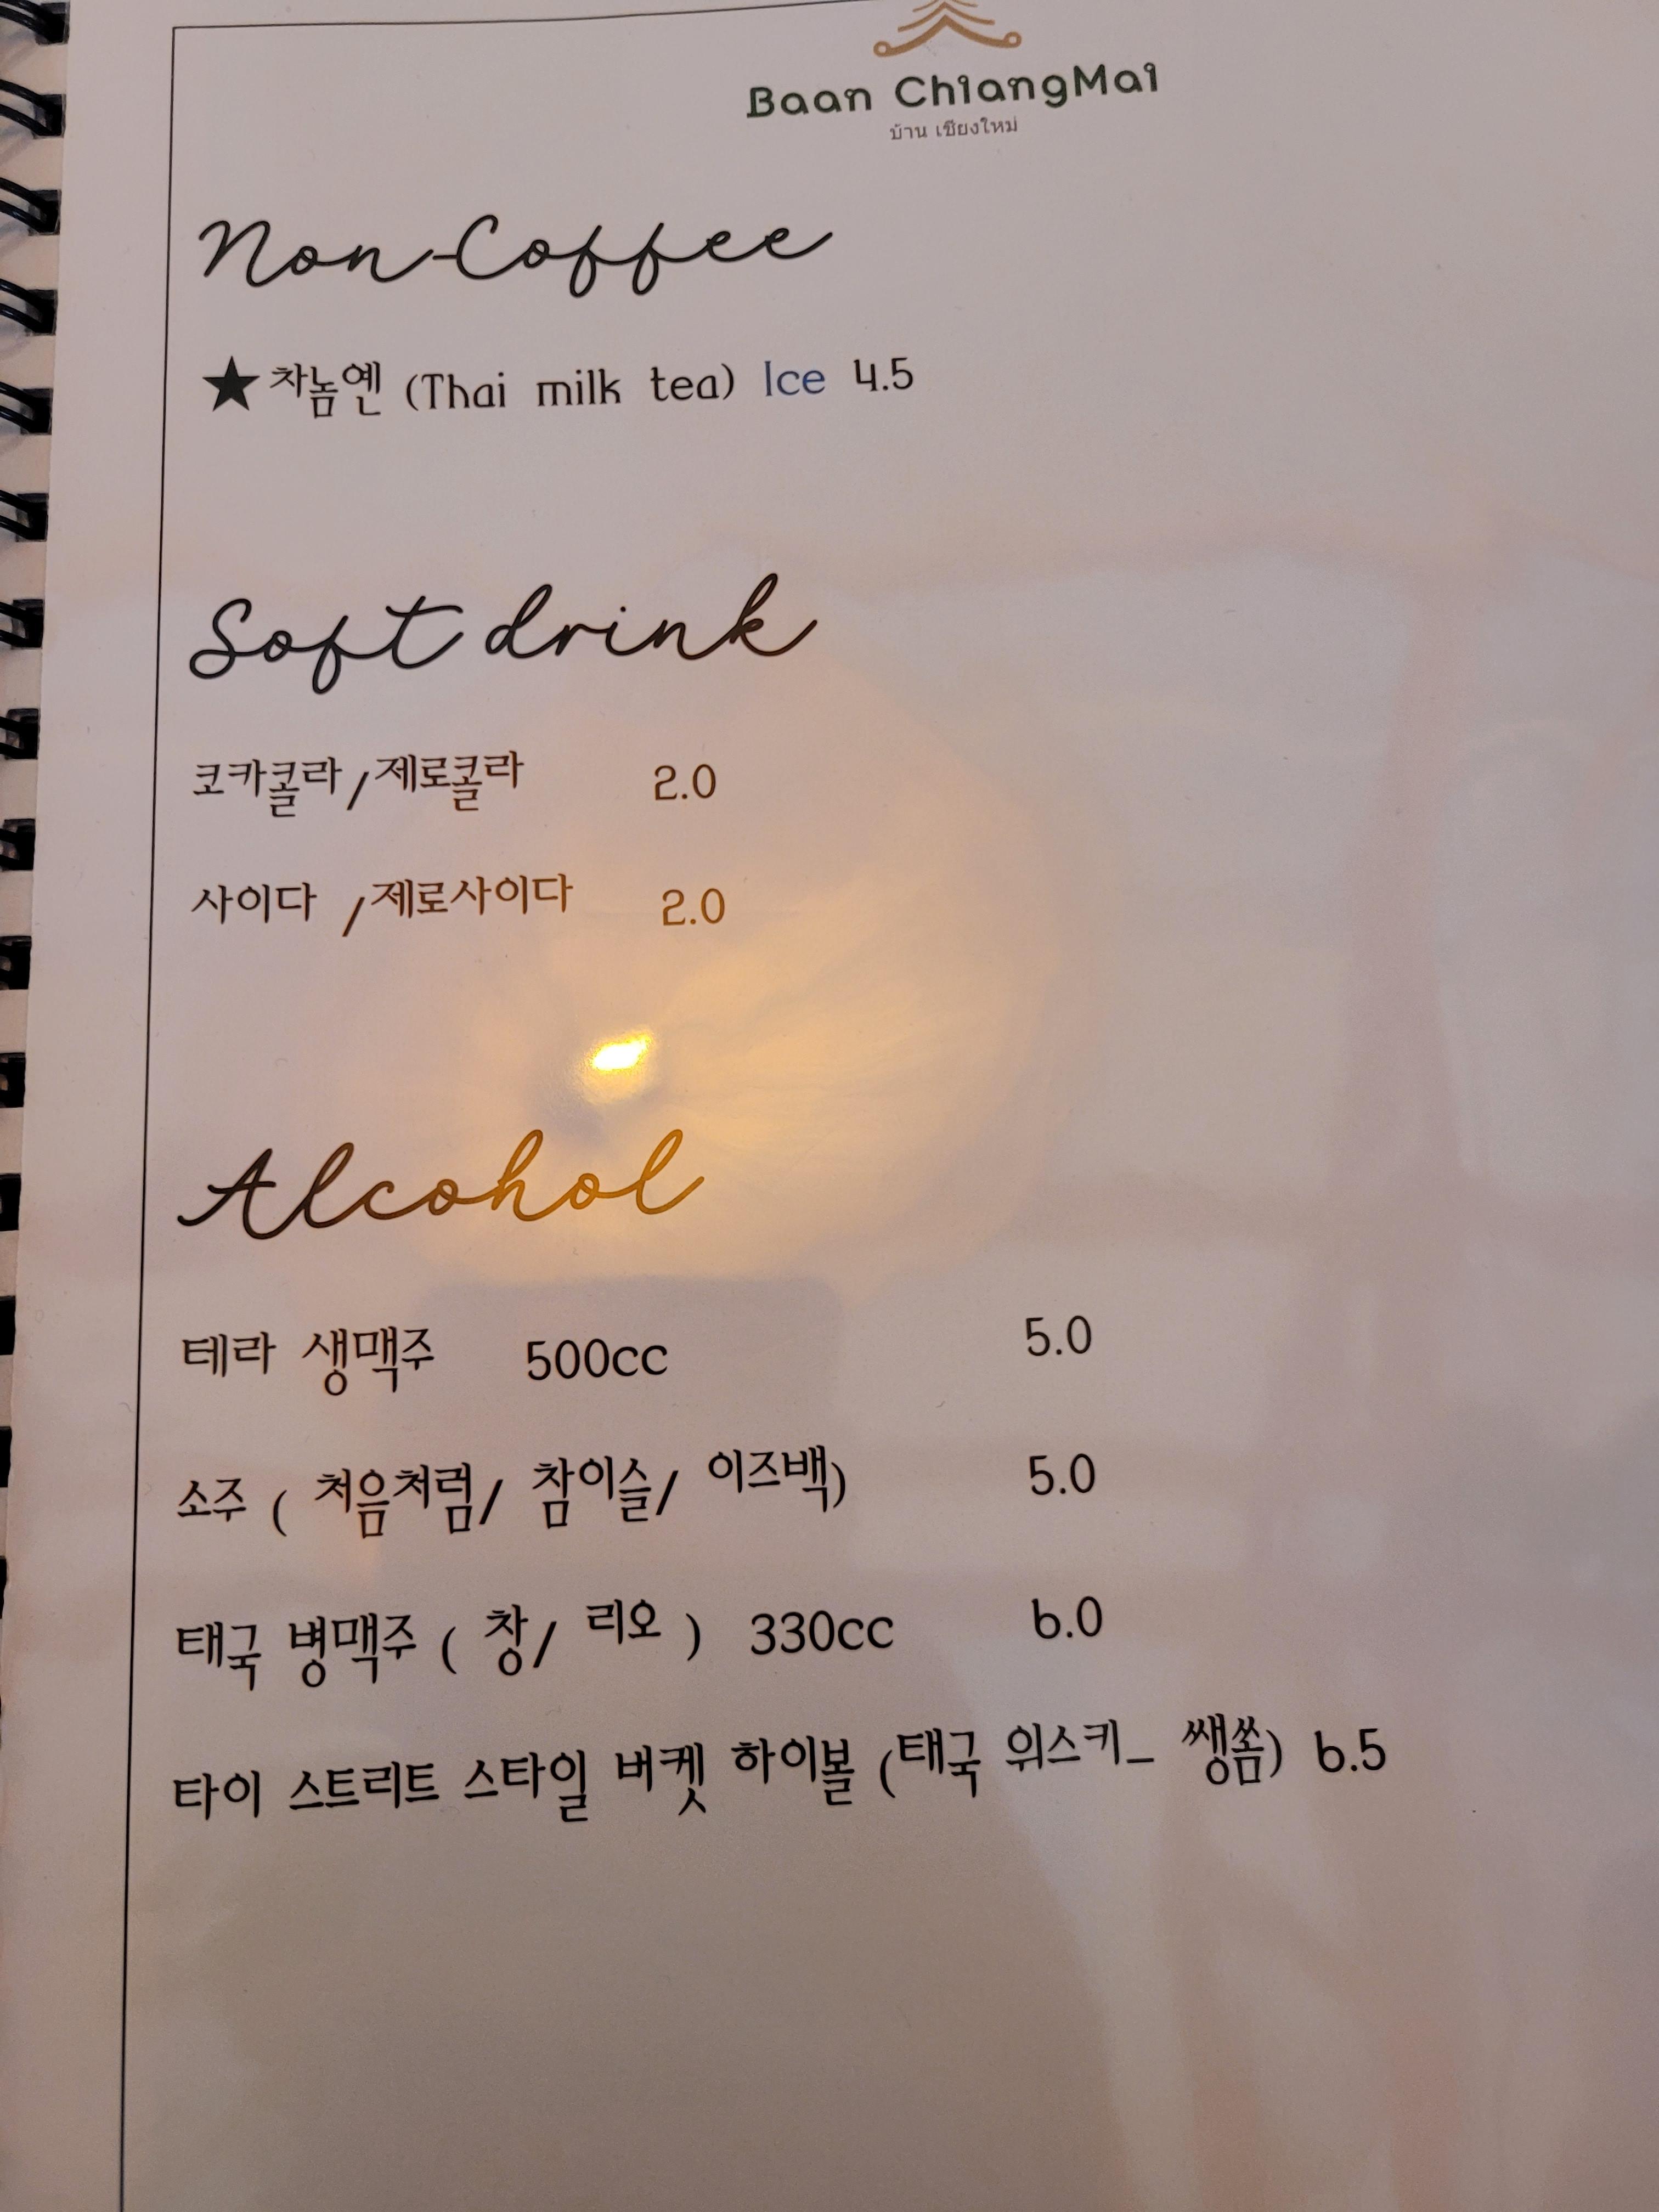 Baan ChiangMai
บ้าน เชียงใหม่
Non-Coffee
★차놈옌 (Thai milk tea) Ice 4.5
Soft drink
코카콜라/제로콜라 2.0
사이다 /제로사이다 2.0
Alcohol
테라 생맥주 500cc 5.0
소주 ( 처음처럼/ 참이슬/ 이즈백) 5.0
태국 병맥주 ( 창/ 리오 ) 330cc 6.0
타이 스트리트 스타일 버켓 하이볼 (태국 위스키_ 쌩쏨) 6.5